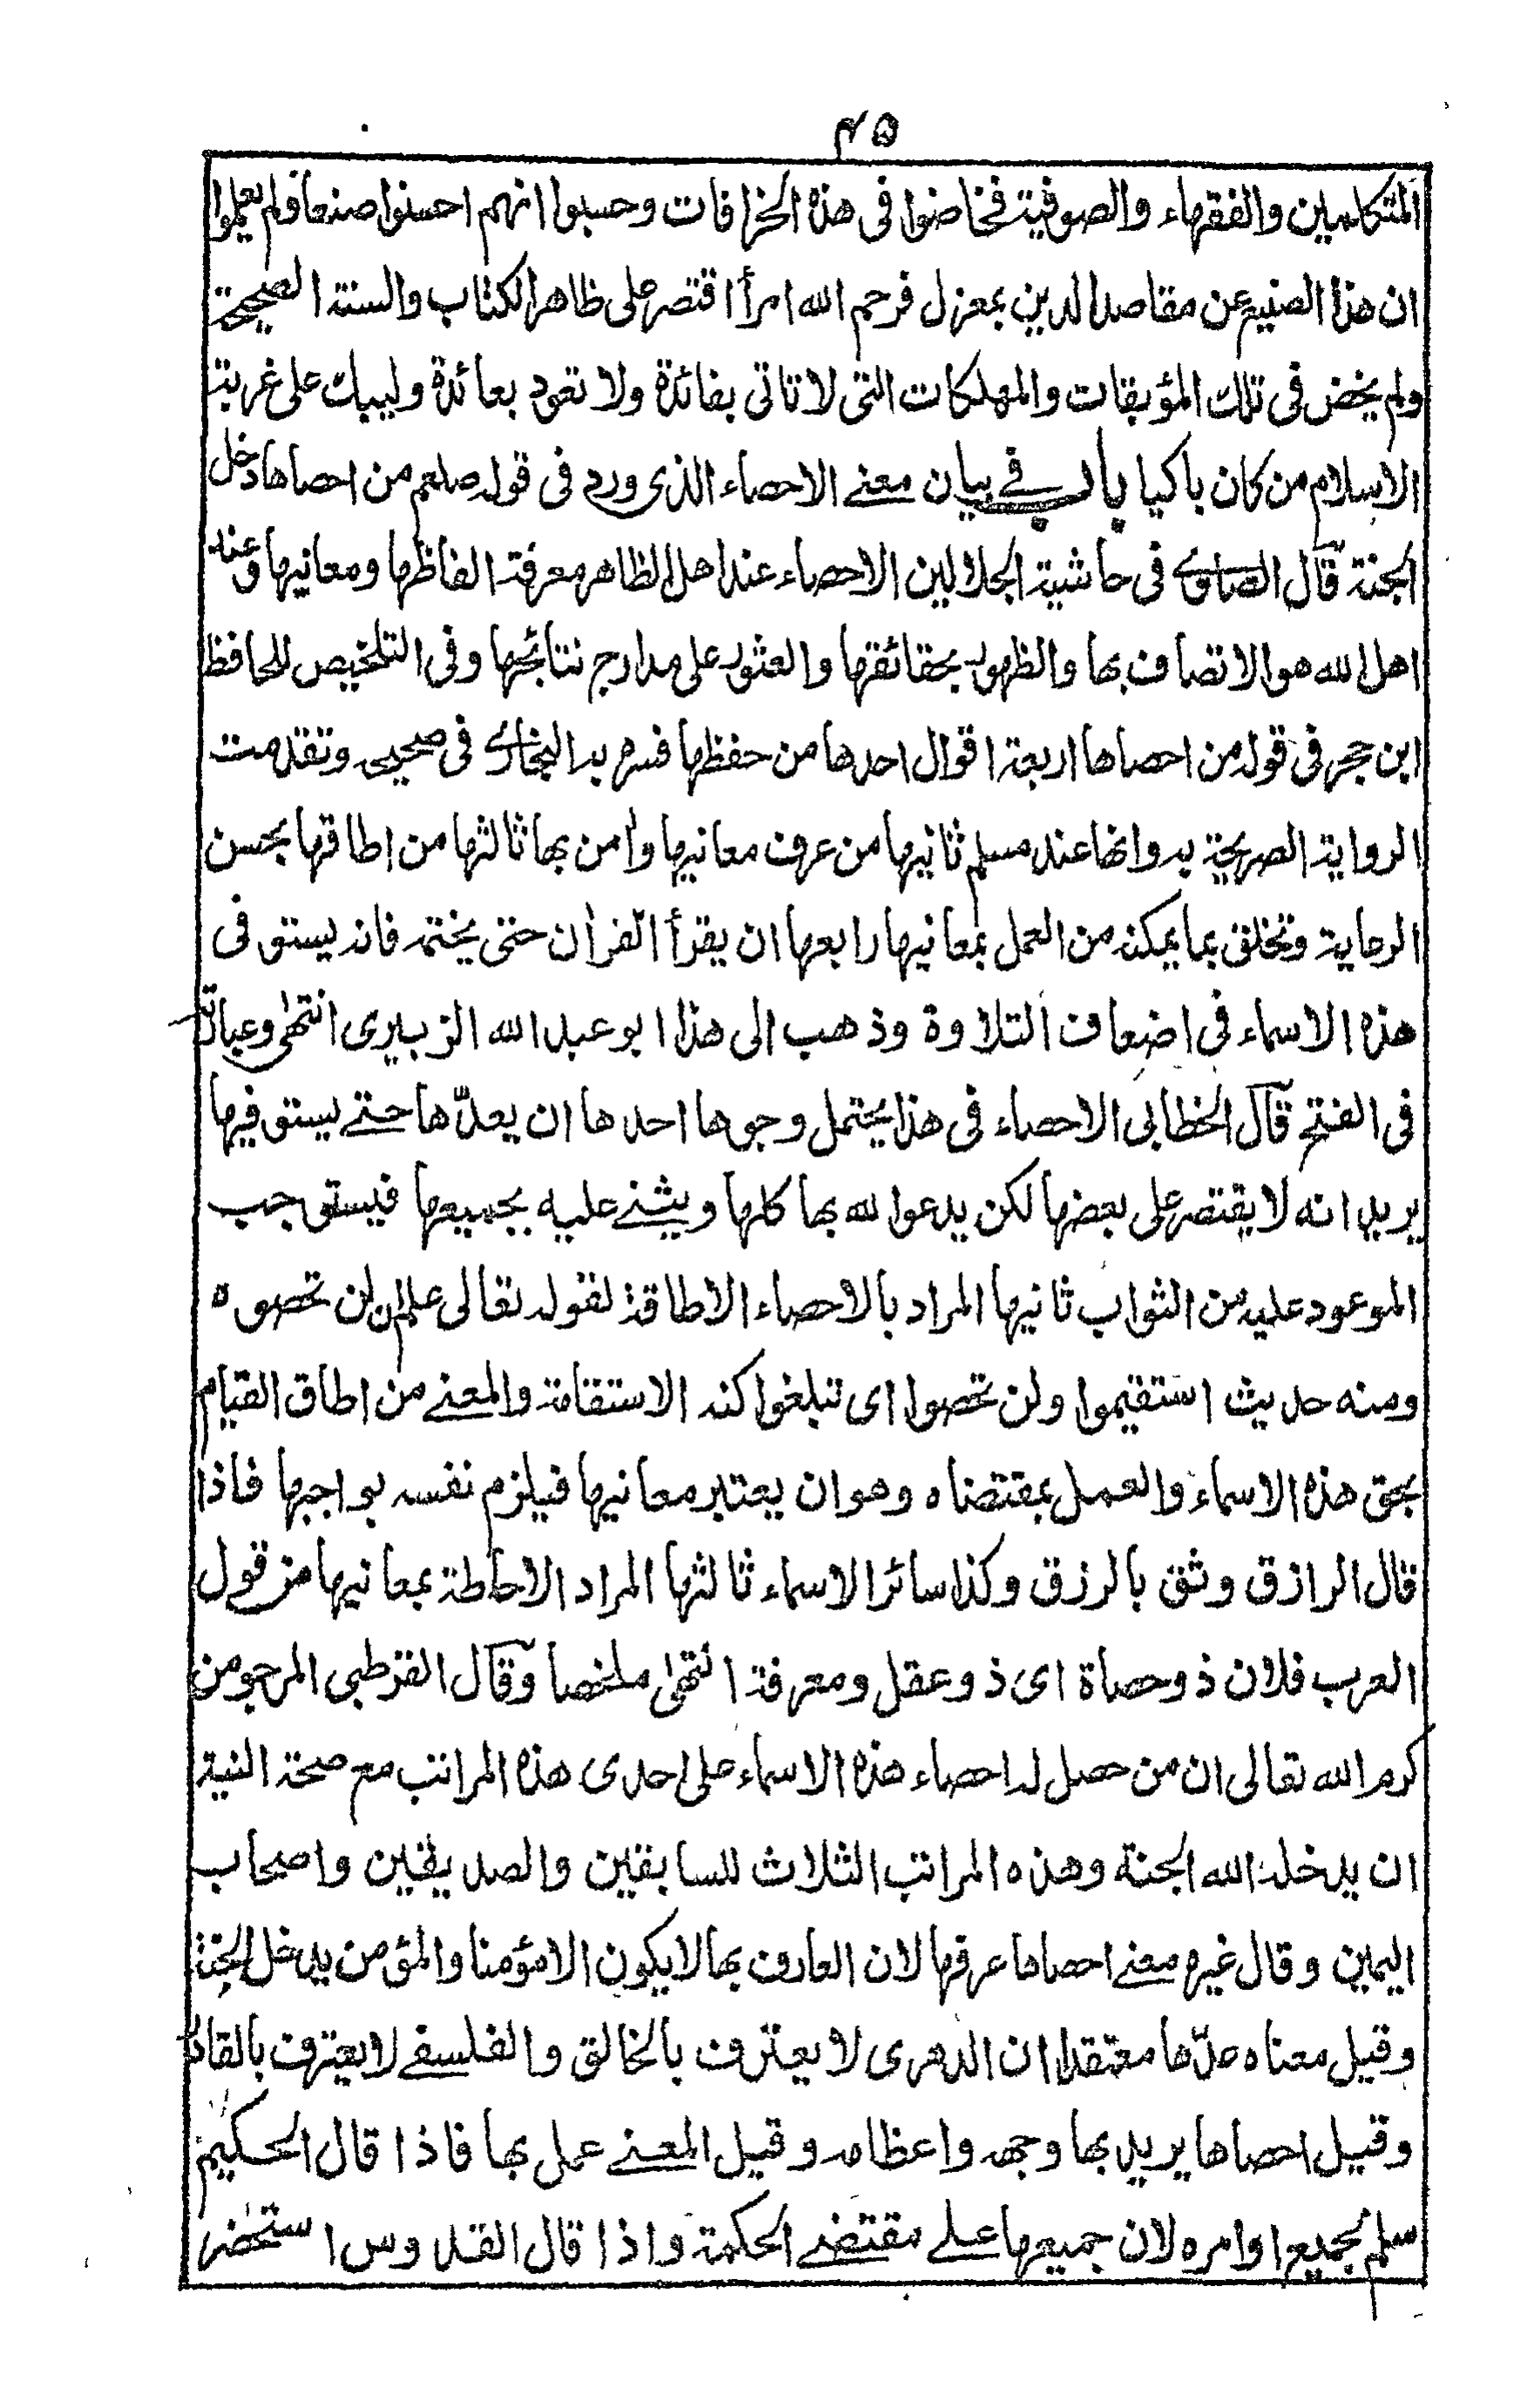 ٤٥
المتكلمين والفقهاء والصوفية فخاضوا فى هذه الخرافات وحسبوا انهم احسنوا صنعا ولم يعلموا
ان هذا الصنيع عن مقاصد الدين بمعزل فرحم الله امرأ اقتصر على ظاهر الكتاب والسنة الصحيحة
ولم يخض فى تلك المؤبقات والمهلكات التى لا تاتى بفائدة ولا تعود بعائدة وليبك على غربة
الاسلام من كان باكيا باب فے بيان معنے الاحصاء الذى ورد فى قوله صلعم من احصاها دخل
الجنة قال الصاوے فى حاشية الجلالين الاحصاء عند اهل الظاهر معرفة الفاظها ومعانيها وعند
اهل الله هو الاتصاف بها والظهور بحقائقها والعثور على مدارج نتائجها وفى التلخيص للحافظ
ابن حجر فى قوله من احصاها اربعة اقوال احدها من حفظها فسره به البخارے فى صحيحه وتقدمت
الرواية الصريحة به وانها عند مسلم ثانيها من عرف معانيها وأمن بها ثالثها من اطاقها بحسن
الرعاية وتخلق بما يمكنه من العمل بمعانيها رابعها ان يقرأ القرأن حتى يختمه فانه يستوفى
هذه الاسماء فى اضعاف التلاوة وذهب الى هذا ابو عبد الله الزبيرى انتهى وعبارته
فى الفتح قال الخطابى الاحصاء فى هذا يحتمل وجوها احدها ان يعدّها حتے يستوفيها
يريد انه لا يقتصر على بعضها لكن يدعوا لله بها كلها ويثنے عليه بجميعها فيستوجب
الموعود عليه من الثواب ثانيها المراد بالاحصاء الاطاقة لقوله تعالى علم ان لن تحصوه
ومنه حديث استقيموا ولن تحصوا اى تبلغوا كنه الاستقامة والمعنے من اطاق القيام
بحق هذه الاسماء والعمل بمقتضاه وهو ان يعتبر معانيها فيلزم نفسه بواجبها فاذا
قال الرازق وثق بالرزق وكذا سائر الاسماء ثالثها المراد الاحاطة بمعانيها من قول
العرب فلان ذو حصاة اى ذو عقل ومعرفة انتهى ملخصا وقال القرطبى المرجو من
كرم الله تعالى ان من حصل له احصاء هذه الاسماء على احدى هذه المراتب مع صحة النية
ان يدخله الله الجنة وهذه المراتب الثلاث للسابقين والصديقين واصحاب
اليمين وقال غيره معنے احصاها عرفها لان العارف بها لا يكون الا مؤمنا والمؤمن يدخل الجنة
وقيل معناه عدّها معتقدا ان الدهرى لا يعترف بالخالق والفلسفے لا يعترف بالقادر
وقيل احصاها يريد بها وجهه واعظامه وقيل المعنے عمل بها فاذا قال الحكيم
سلم بجميع اوامره لان جميعها علے مقتضے الحكمة واذا قال القدوس استحضر